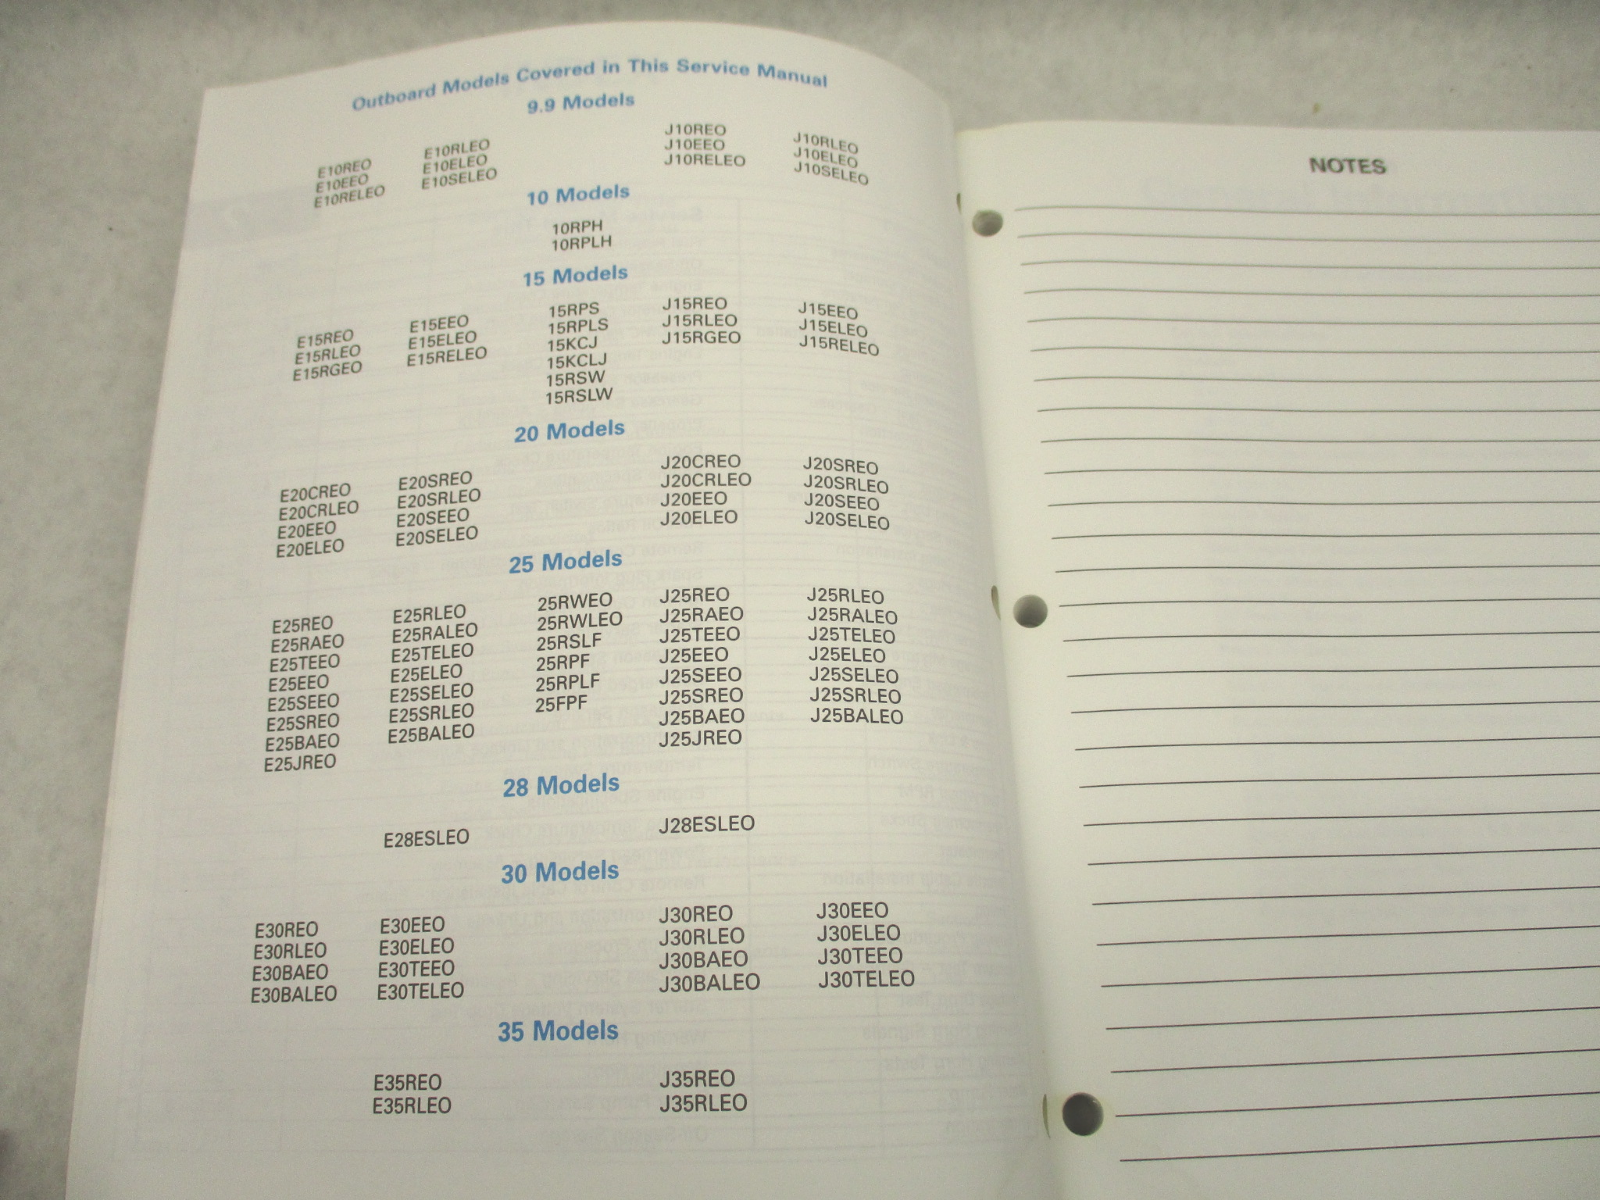 Outboard Models Covered in This Service Manual
9.9 Models
E10REO E10RLEO J10REO J10RLEO
E10EEO E10ELEO J10EEO J10ELEO
E10RELEO E10SELEO J10RELEO J10SELEO
10 Models
10RPH
10RPLH
15 Models
E15REO E15EEO 15RPS J15REO J15EEO
E15RLEO E15ELEO 15RPLS J15RLEO J15ELEO
E15RGEO E15RELEO 15KCJ J15RGEO J15RELEO
15KCLJ
15RSW
15RSLW
20 Models
E20CREO E20SREO J20CREO J20SREO
E20CRLEO E20SRLEO J20CRLEO J20SRLEO
E20EEO E20SEEO J20EEO J20SEEO
E20ELEO E20SELEO J20ELEO J20SELEO
25 Models
E25REO E25RLEO 25RWEO J25REO J25RLEO
E25RAEO E25RALEO 25RWLEO J25RAEO J25RALEO
E25TEEO E25TELEO 25RSLF J25TEEO J25TELEO
E25EEO E25ELEO 25RPF J25EEO J25ELEO
E25SEEO E25SELEO 25RPLF J25SEEO J25SELEO
E25SREO E25SRLEO 25FPF J25SREO J25SRLEO
E25BAEO E25BALEO J25BAEO J25BALEO
E25JREO J25JREO
28 Models
E28ESLEO J28ESLEO
30 Models
E30REO E30EEO J30REO J30EEO
E30RLEO E30ELEO J30RLEO J30ELEO
E30BAEO E30TEEO J30BAEO J30TEEO
E30BALEO E30TELEO J30BALEO J30TELEO
35 Models
E35REO J35REO
E35RLEO J35RLEO
NOTES